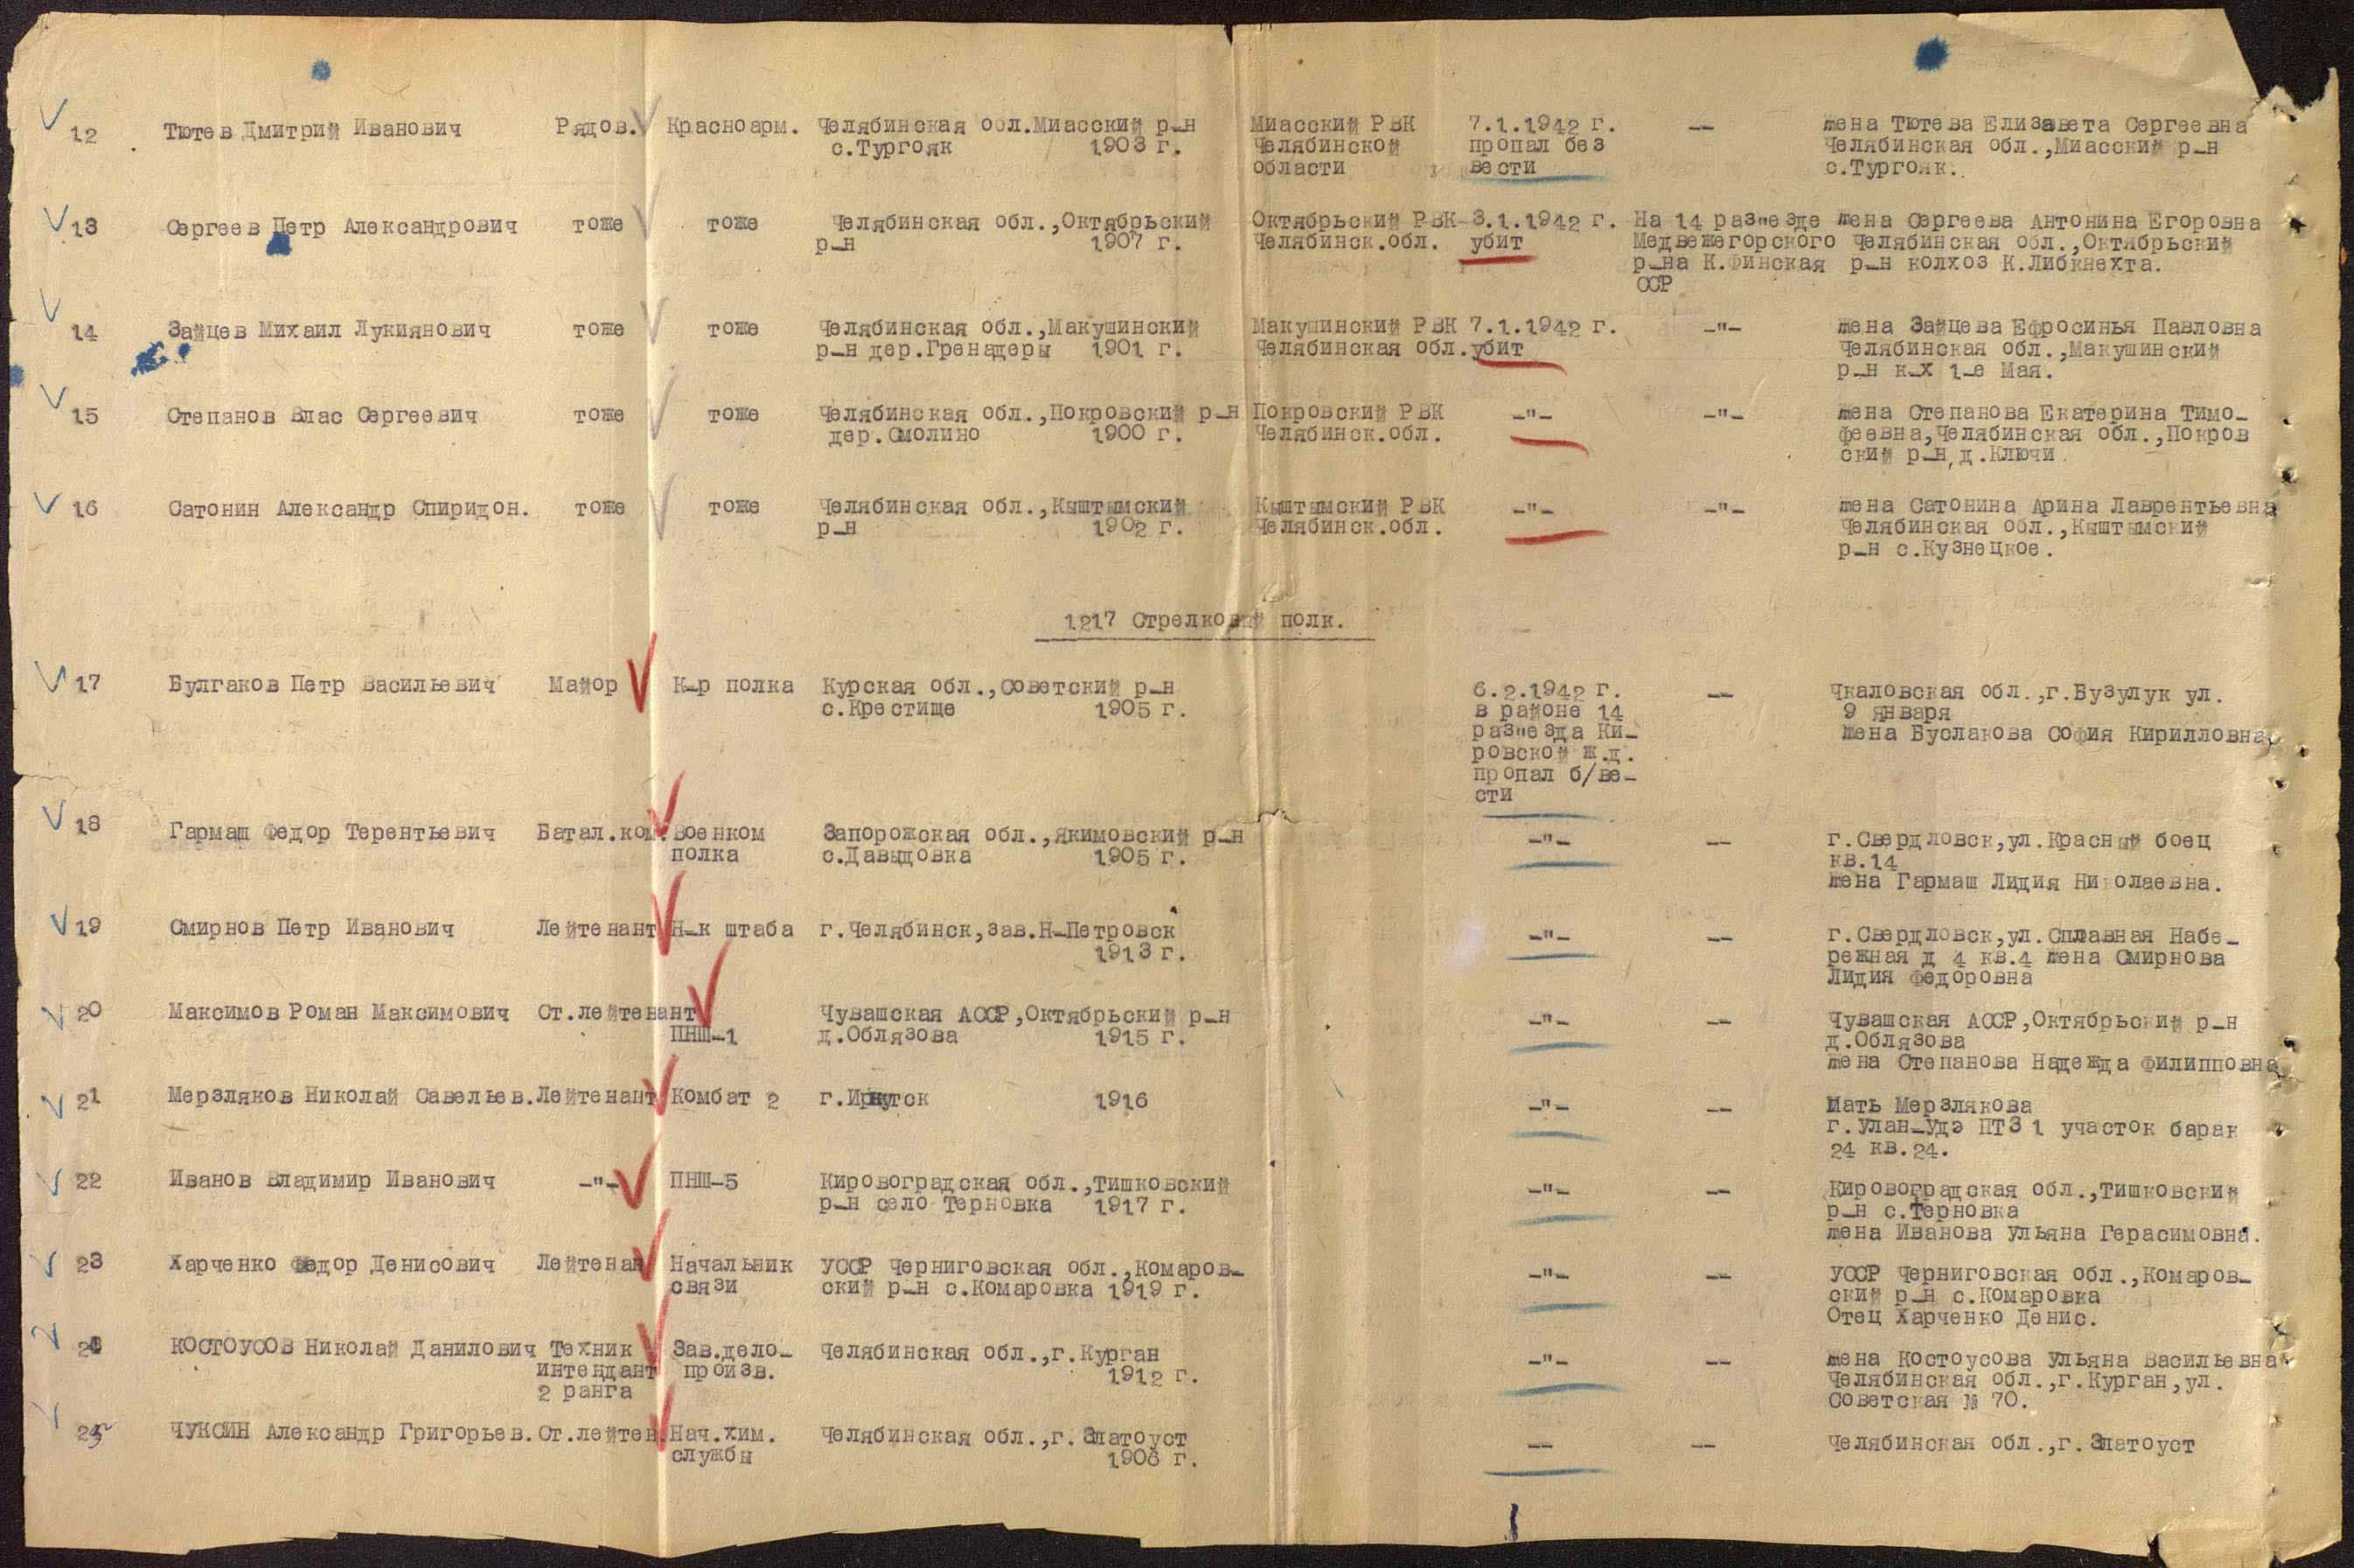 12 Тютев Дмитрий Иванович Рядов. Красноарм. Челябинская обл.Миасский р-н Миасский РВК 7.1.1942 г. -- жена Тютева Елизавета Сергеевна
с.Тургояк 1903 г. Челябинской пропал без Челябинская обл.,Миасский р-н
области вести с.Тургояк.
13 Сергеев Петр Александрович тоже тоже Челябинская обл.,Октябрьский Октябрьский РВК 3.1.1942 г. На 14 раз"езде жена Сергеева Антонина Егоровна
р-н 1907 г. Челябинск.обл. убит Медвежегорского Челябинская обл.,Октябрьский
р-на К.Финская р-н колхоз К.Либкнехта.
ССР
14 Зайцев Михаил Лукиянович тоже тоже Челябинская обл.,Макушинский Макушинский РВК 7.1.1942 г. -"- жена Зайцева Ефросинья Павловна
р-н дер.Гренадеры 1901 г. Челябинская обл. убит Челябинская обл.,Макушинский
р-н к-х 1-е Мая.
15 Степанов Влас Сергеевич тоже тоже Челябинская обл.,Покровский р-н Покровский РВК -"- -"- жена Степанова Екатерина Тимо-
дер.Смолино 1900 г. Челябинск.обл. феевна,Челябинская обл.,Покров
ский р-н,д.Ключи
16 Сатонин Александр Спиридон. тоже тоже Челябинская обл.,Кыштымский Кыштымский РВК -"- -"- жена Сатонина Арина Лаврентьевна
р-н 1902 г. Челябинск.обл. Челябинская обл.,Кыштымский
р-н с.Кузнецкое.
1217 Стрелковый полк.
17 Булгаков Петр Васильевич Майор К-р полка Курская обл.,Советский р-н 6.2.1942 г. -- Чкаловская обл.,г.Бузулук ул.
с.Крестище 1905 г. в районе 14 9 января
раз"езда Ки- жена Буслакова София Кирилловна
ровской ж.д.
пропал б/ве-
сти
18 Гармаш Федор Терентьевич Батал.ком. Военком Запорожская обл.,Якимовский р-н -"- -- г.Свердловск,ул.Красный боец
полка с.Давыдовка 1905 г. кв.14
жена Гармаш Лидия Николаевна.
19 Смирнов Петр Иванович Лейтенант Н-к штаба г.Челябинск,зав.Н-Петровск -"- -- г.Свердловск,ул.Сплавная Набе-
1913 г. режная д 4 кв.4 жена Смирнова
Лидия Федоровна
20 Максимов Роман Максимович Ст.лейтенант Чувашская АССР,Октябрьский р-н -"- -- Чувашская АССР,Октябрьский р-н
ПНШ-1 д.Облязова 1915 г. д.Облязова
жена Степанова Надежда Филипповна
21 Мерзляков Николай Савельев. Лейтенант Комбат 2 г.Иркутск 1916 -"- -- Мать Мерзлякова
г.Улан-Удэ ПТЗ 1 участок барак
24 кв.24.
22 Иванов Владимир Иванович -"- ПНШ-5 Кировоградская обл.,Тишковский -"- -- Кировоградская обл.,Тишковский
р-н село Терновка 1917 г. р-н с.Терновка
жена Иванова Ульяна Герасимовна.
23 Харченко Федор Денисович Лейтенан Начальник УССР Черниговская обл.,Комаров- -"- -- УССР Черниговская обл.,Комаров-
связи ский р-н с.Комаровка 1919 г. ский р-н с.Комаровка
Отец Харченко Денис.
24 КОСТОУСОВ Николай Данилович Техник Зав.дело- Челябинская обл.,г.Курган -"- -- жена Костоусова Ульяна Васильевна
интендант произв. 1912 г. Челябинская обл.,г.Курган,ул.
2 ранга Советская № 70.
25 ЧУКСИН Александр Григорьев. Ст.лейтен. Нач.хим. Челябинская обл.,г.Златоуст -- -- Челябинская обл.,г.Златоуст
службы 1908 г.